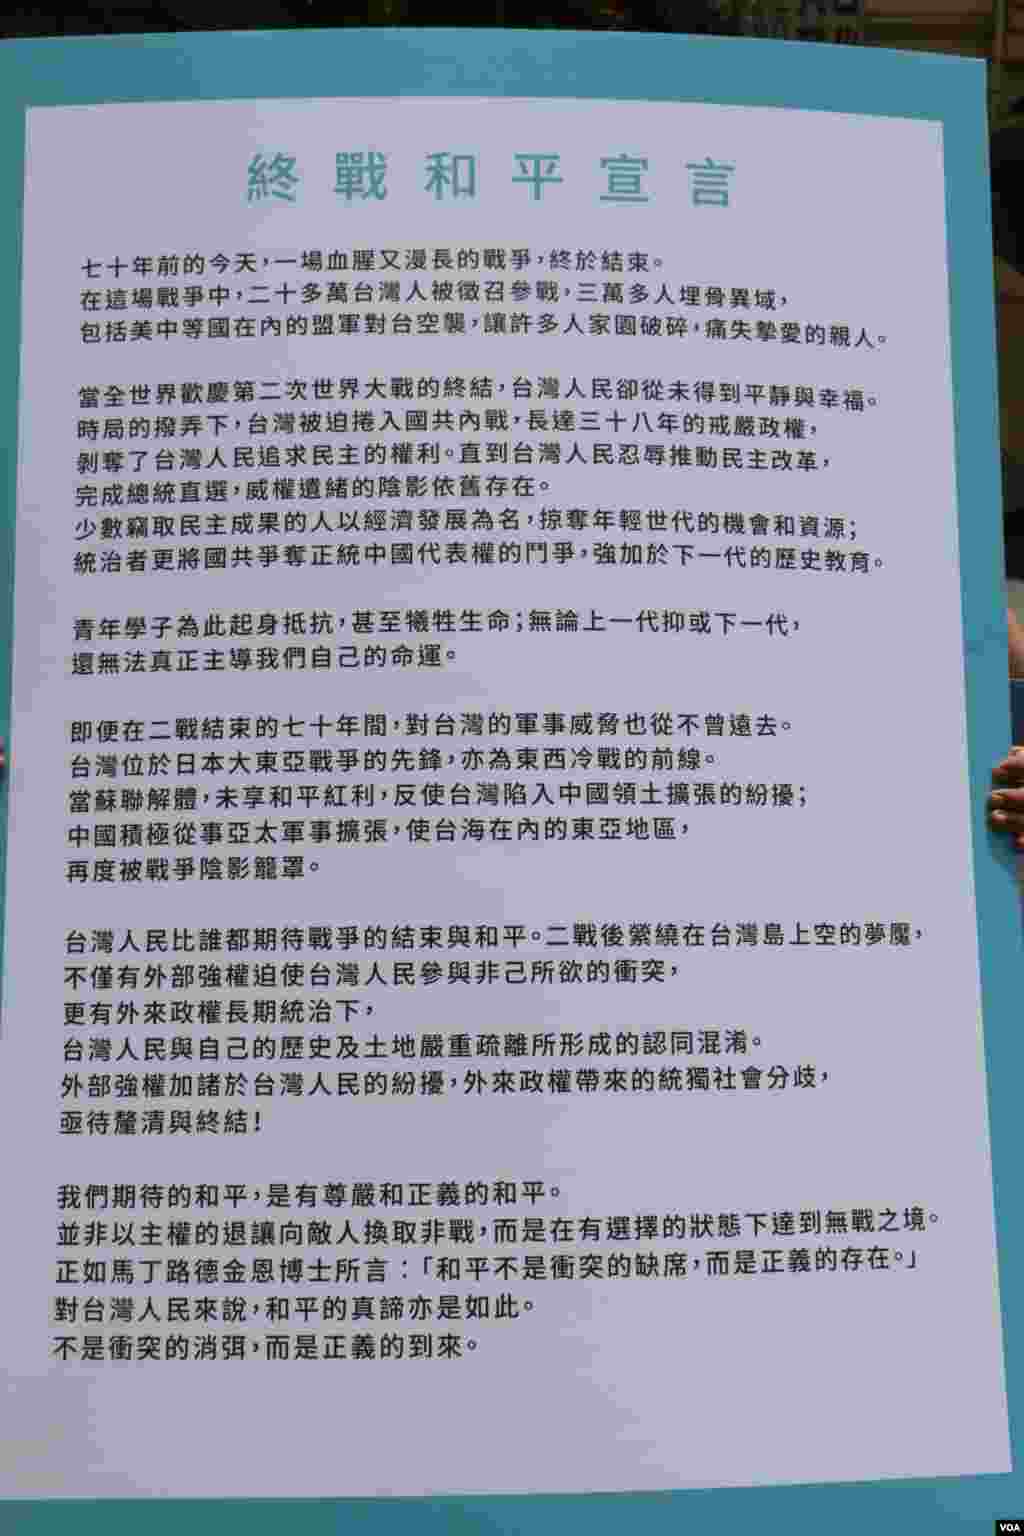 終戰和平宣言
七十年前的今天，一場血腥又漫長的戰爭，終於結束。
在這場戰爭中，二十多萬台灣人被徵召參戰，三萬多人埋骨異域，
包括美中等國在內的盟軍對台空襲，讓許多人家園破碎，痛失摯愛的親人。
當全世界歡慶第二次世界大戰的終結，台灣人民卻從未得到平靜與幸福。
時局的撥弄下，台灣被迫捲入國共內戰，長達三十八年的戒嚴政權，
剝奪了台灣人民追求民主的權利。直到台灣人民忍辱推動民主改革，
完成總統直選，威權遺緒的陰影依舊存在。
少數竊取民主成果的人以經濟發展為名，掠奪年輕世代的機會和資源；
統治者更將國共爭奪正統中國代表權的鬥爭，強加於下一代的歷史教育。
青年學子為此起身抵抗，甚至犧牲生命；無論上一代抑或下一代，
還無法真正主導我們自己的命運。
即便在二戰結束的七十年間，對台灣的軍事威脅也從不曾遠去。
台灣位於日本大東亞戰爭的先鋒，亦為東西冷戰的前線。
當蘇聯解體，未享和平紅利，反使台灣陷入中國領土擴張的紛擾；
中國積極從事亞太軍事擴張，使台海在內的東亞地區，
再度被戰爭陰影籠罩。
台灣人民比誰都期待戰爭的結束與和平。二戰後縈繞在台灣島上空的夢魘，
不僅有外部強權迫使台灣人民參與非己所欲的衝突，
更有外來政權長期統治下，
台灣人民與自己的歷史及土地嚴重疏離所形成的認同混淆。
外部強權加諸於台灣人民的紛擾，外來政權帶來的統獨社會分歧，
亟待釐清與終結！
我們期待的和平，是有尊嚴和正義的和平。
並非以主權的退讓向敵人換取非戰，而是在有選擇的狀態下達到無戰之境。
正如馬丁路德金恩博士所言：「和平不是衝突的缺席，而是正義的存在。」
對台灣人民來說，和平的真諦亦是如此。
不是衝突的消弭，而是正義的到來。
VOA